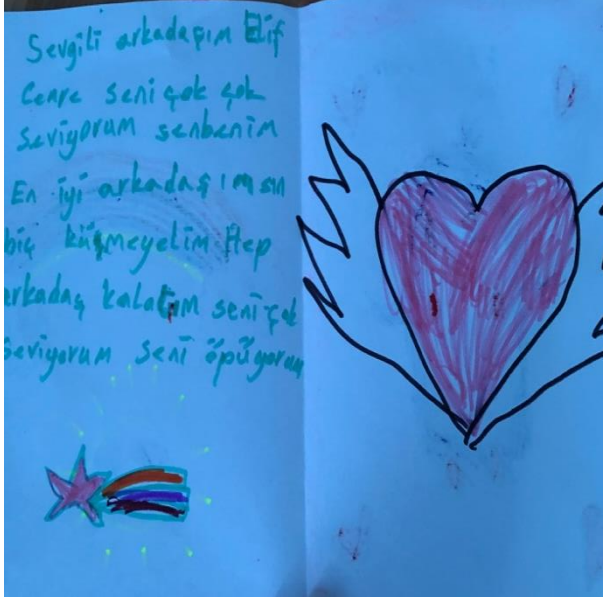 Sevgili arkadaşım Elif
Cenre seni çok çok
Seviyorum senbenim
En iyi arkadaşımsın
hiç küşmeyelim Hep
arkadaş kalalım seni çok
Seviyorum seni öpüyorum